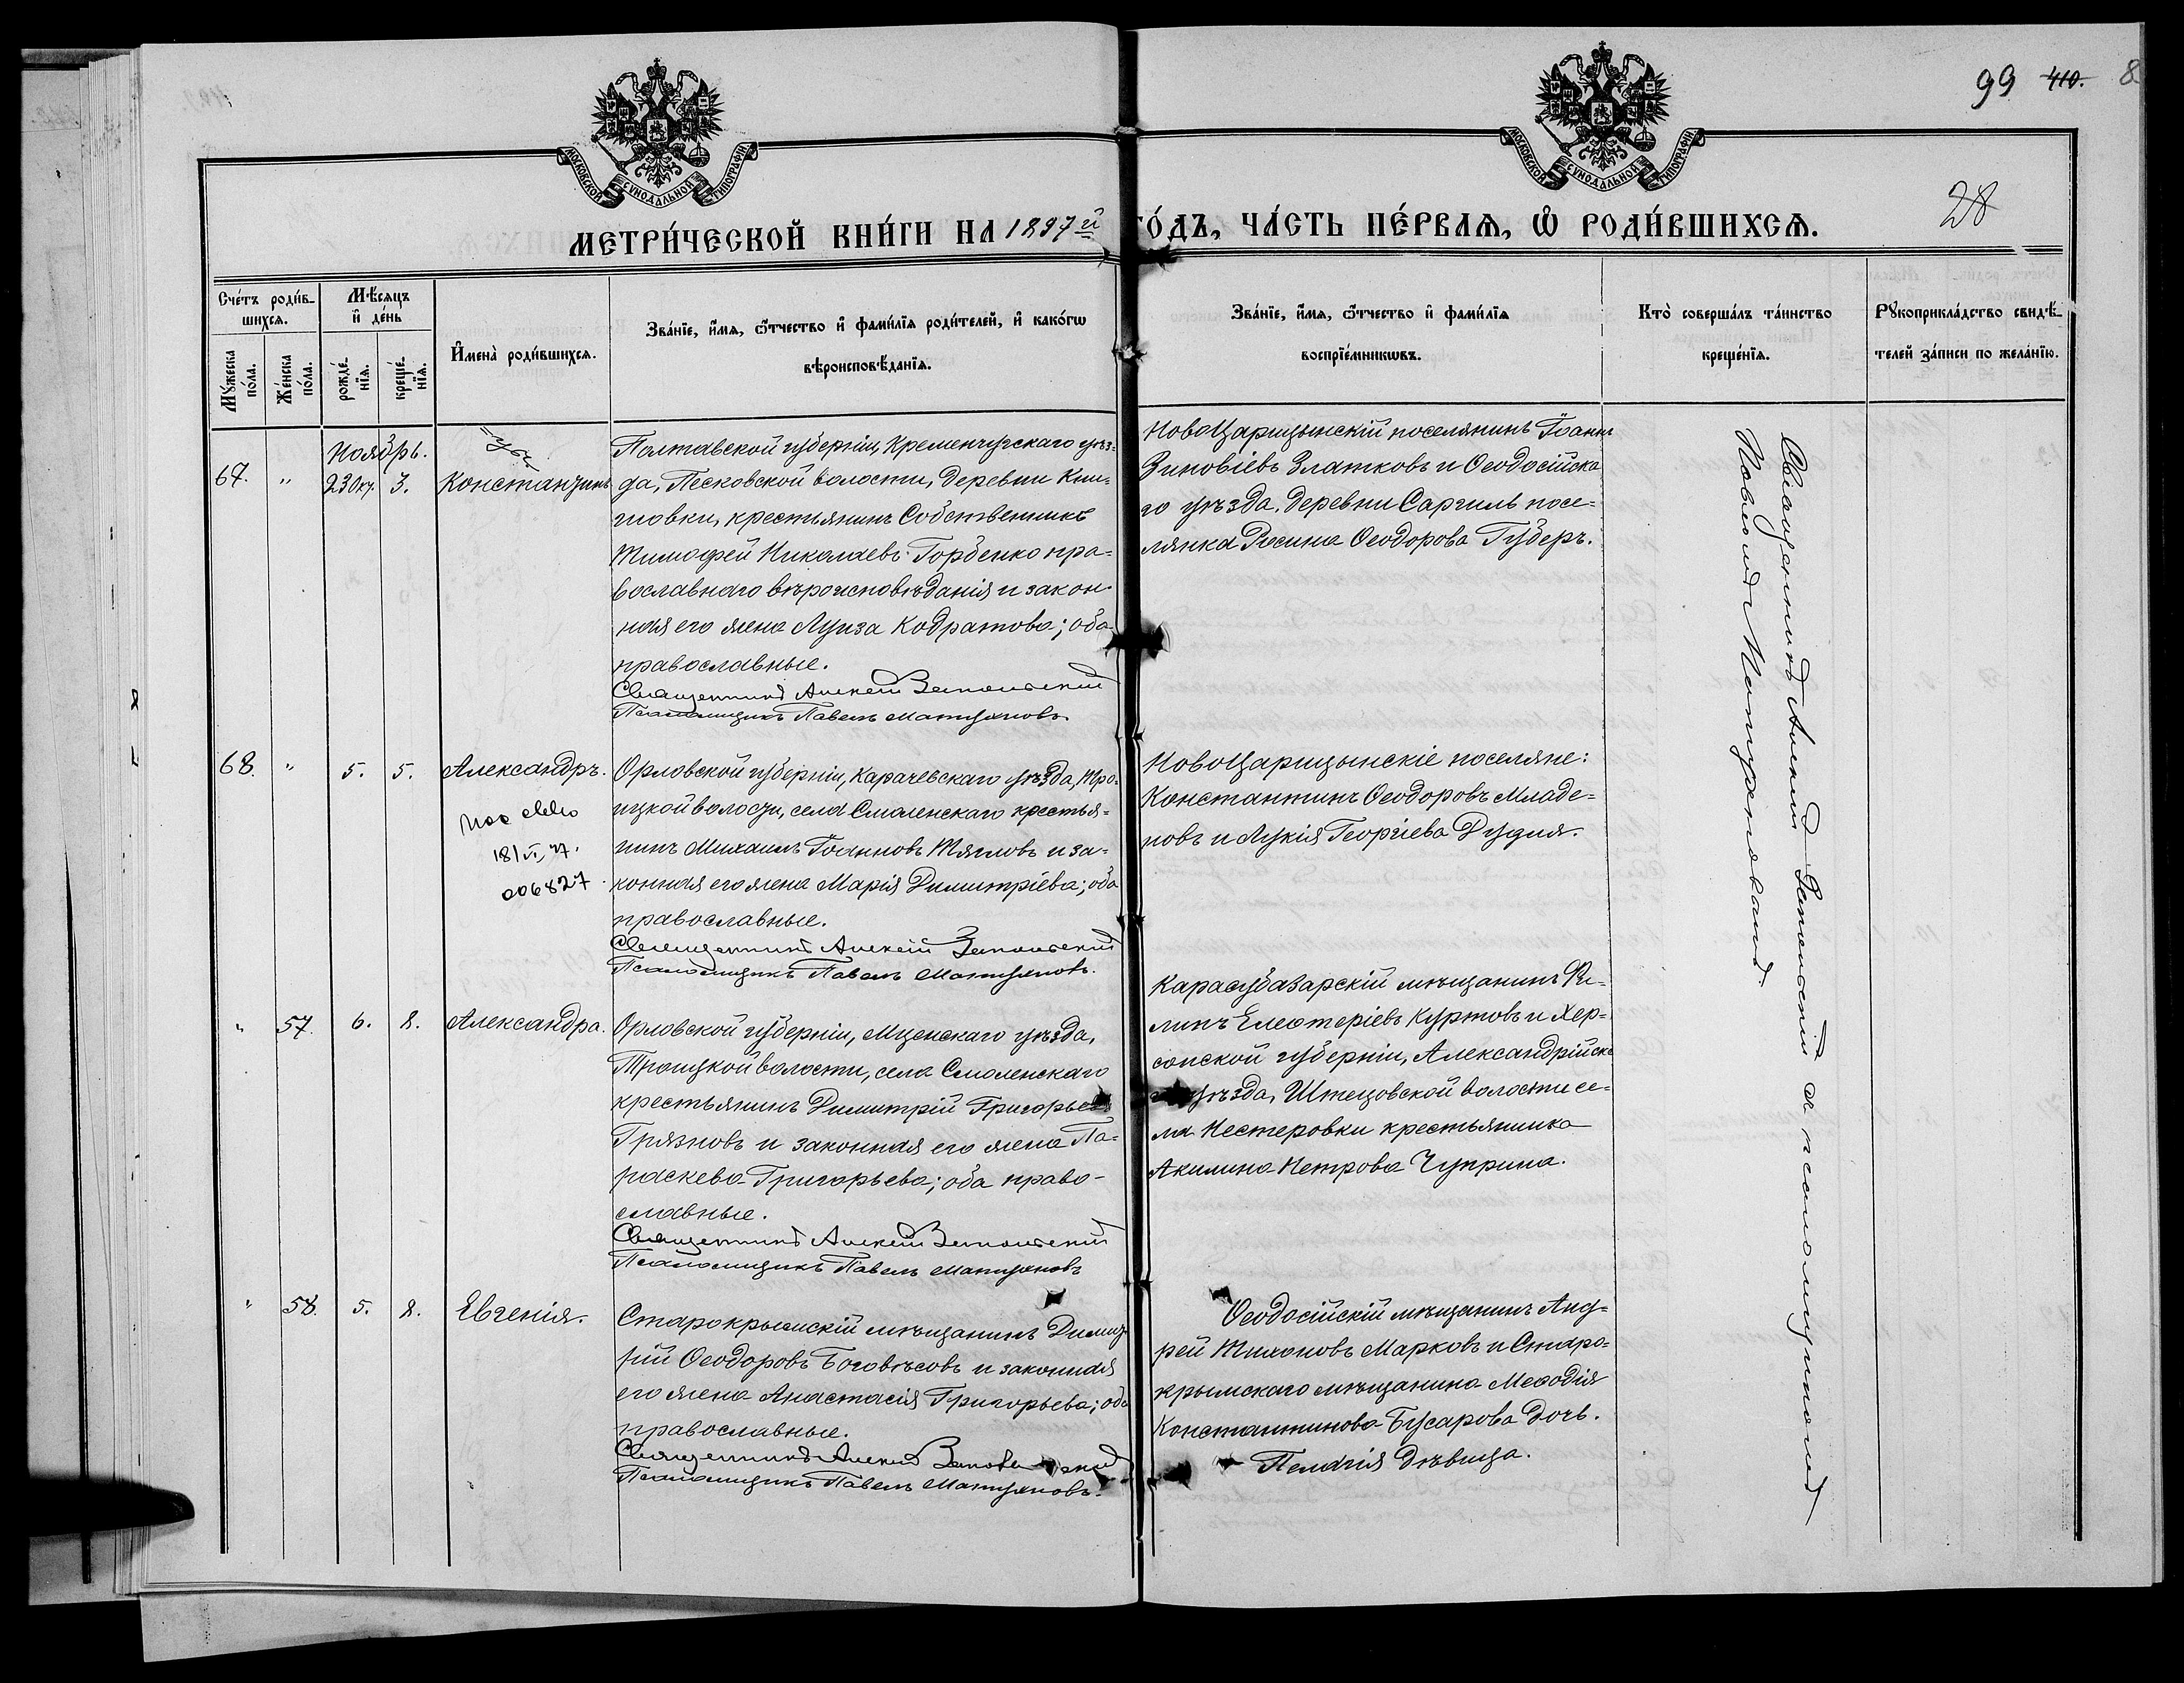 99 410. 8
28
МОСКОВСКОЙ СѴНОДАЛЬНОЙ ТИПОГРАФІИ
МОСКОВСКОЙ СѴНОДАЛЬНОЙ ТИПОГРАФІИ
МЕТРИ́ЧЕСКОЙ КНИ́ГИ НА 1897й ГО́ДЪ, ЧА́СТЬ ПЕ́РВАѦ, Ѡ РОДИ́ВШИХСѦ.
Сче́тъ роди́в-
шихсѧ.
Мꙋжеска по́ла.
Же́нска по́ла.
Мѣ́сяцъ и҆ де́нь
рожде́нїѧ.
креще́нїѧ.
И҆мена̀ роди́вшихсѧ.
Зва́нїе, и҆́мѧ, ѻ҆́тчество и҆ фамі́лїѧ роди́телей, и҆ како́гѡ
вѣроисповѣ́данїѧ.
Зва́нїе, и҆́мѧ, ѻ҆́тчество и҆ фамі́лїѧ
воспрїе́мникѡвъ.
Кто̀ соверша́лъ та́инство
креще́нїѧ.
Рꙋкоприкла́дство свидѣ́-
телей за́писи по жела́нїю.
Ноябрь.
67. " 23 Окт. 3. Константинъ
Полтавской губерніи, Кременчугскаго уѣз-
да, Песковской волости, деревни Кни-
шовки, крестьянинъ Собственникъ
Тимофей Николаевъ Горбенко пра-
вославнаго вѣроисповѣданія и закон-
ная его жена Луиза Кодратова; оба
православные.
Священникъ Алексій
Псаломщикъ Павелъ
НовоЦарицынскій поселянинъ Іоаннъ
Зиновіевъ Златковъ и Ѳеодосійска
го уѣзда, деревни Саргиль посе-
лянка Росина Ѳеодорова Губеръ.
68. " 5. 5. Александръ.
18/VI,
006827
Орловской губерніи, Карачевскаго уѣзда, Тро-
ицкой волости, села Смоленскаго крестья-
нинъ Михаилъ Іоанновъ Тягловъ и за-
конная его жена Марія Димитріева; оба
православные.
Священникъ Алексій
Псаломщикъ Павелъ
НовоЦарицынскіе поселяне:
Константинъ Ѳеодоровъ Младе-
новъ и Лукія Георгіева Дудия.
" 57. 6. 8. Александра.
Орловской губерніи, Мценскаго уѣзда,
Троицкой волости, села Смоленскаго
крестьянинъ Димитрій Григорьевъ
Грязновъ и законная его жена Па-
раскева Григорьева; оба право-
славные.
Священникъ Алексій
Псаломщикъ Павелъ
Карасубазарскій мѣщанинъ Фи-
липъ Елевтеріевъ Куртовъ и Хер-
сонской губерніи, Александрійска
го уѣзда, волости се-
ла Нестеровки крестьянинка
Акилина Петрова Чуприна.
" 58. 5. 8. Евгенія.
Старокрымскій мѣщанинъ Димит-
рій Ѳеодоровъ Боговѣсовъ и законная
его жена Анастасія Григорьева; оба
православные.
Священникъ Алексій
Псаломщикъ Павелъ
Ѳеодосійскій мѣщанинъ Анд-
рей Тихоновъ Марковъ и Старо-
крымскаго мѣщанина Меѳодія
Константинова Бусарова дочь.
Пелагія дѣвица.
Священникъ Алексій съ псаломщикомъ
Павломъ